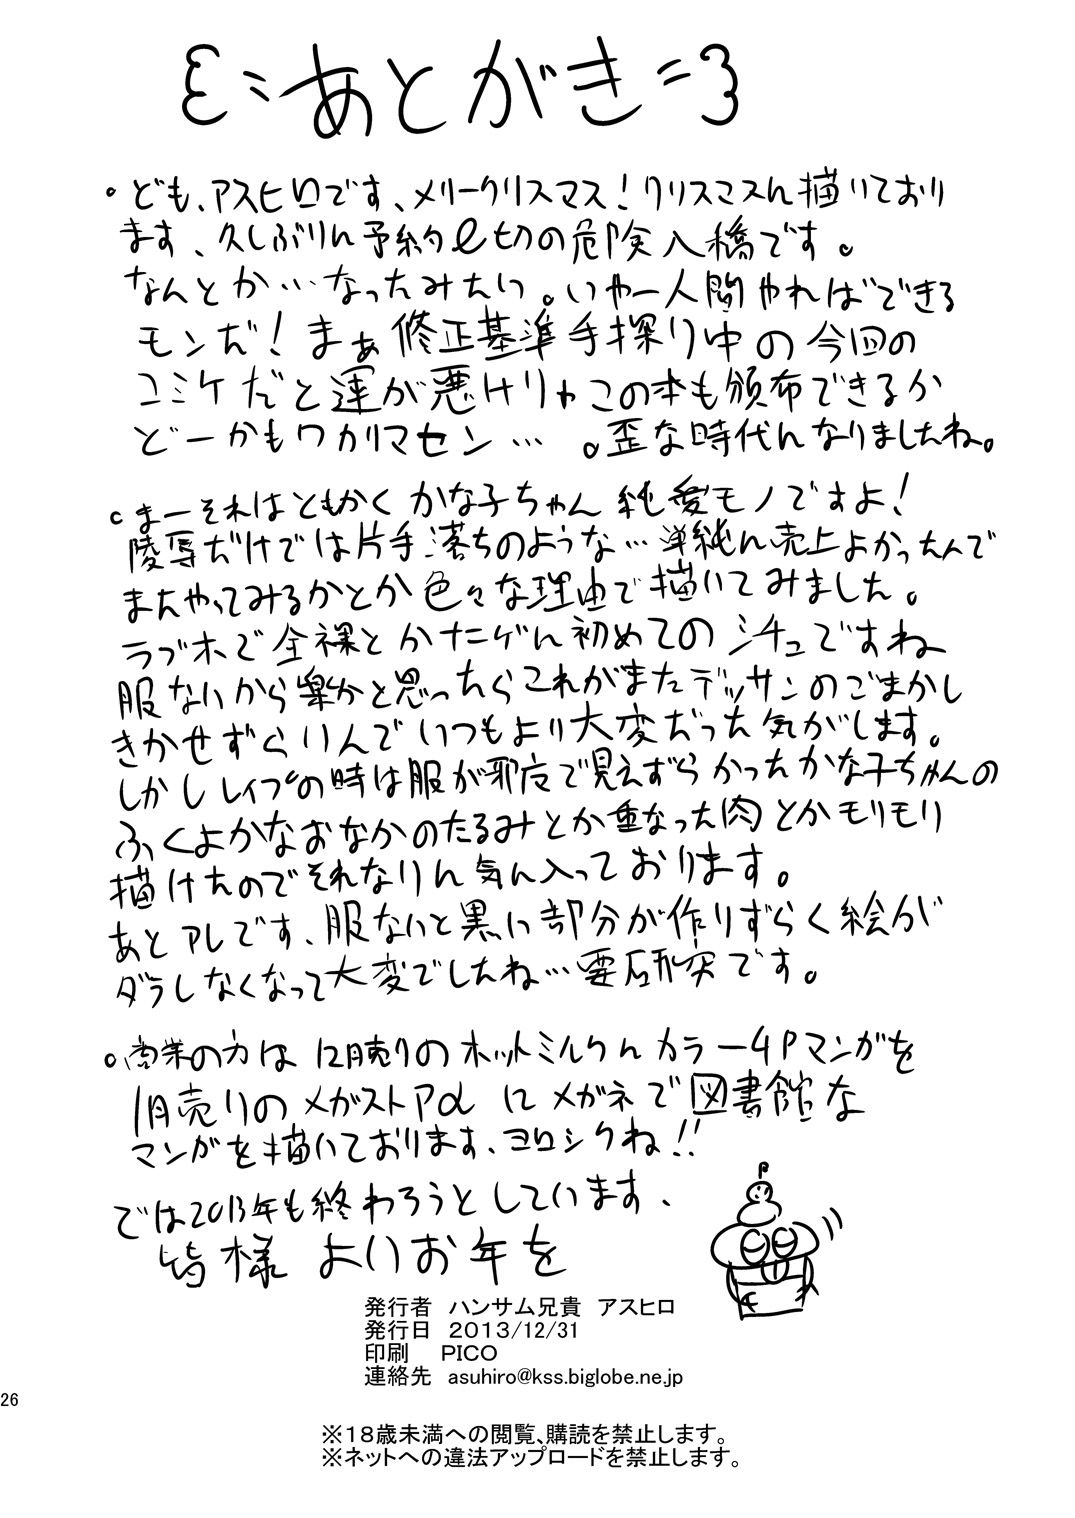 あとがき
。ども、アスヒロです、メリークリスマス！クリスマスに描いており
ます、久しぶりに予約〆切の危険入橋です。
なんとか…なったみたい。いやー人間やればできる
モンだ！まぁ修正基準手探り中の今回の
コミケだと運が悪けりゃこの本も頒布できるか
どーかもワカリマセン…。歪な時代になりましたね。
。まーそれはともかくかな子ちゃん純愛モノですよ！
陵辱だけでは片手落ちのような…単純に売上よかったんで
またやってみるかとか色々な理由で描いてみました。
ラブホで全裸とかナニゲに初めてのシチュですね
服ないから楽かと思ったらこれがまたデッサンのごまかし
きかせずらいんでいつもより大変だった気がします。
しかしレイプの時は服が邪魔で見えずらかったかな子ちゃんの
ふくよかなおなかのたるみとか重なった肉とかモリモリ
描けたのでそれなりに気に入っております。
あとアレです、服ないと黒い部分が作りずらく絵が
ダラしなくなって大変でしたね…要研究です。
。商業の方は12月売りのホットミルクにカラー4Pマンガを
1月売りのメガストアαにメガネで図書館な
マンガを描いております、ヨロシクね！！
では2013年も終わろうとしています、
皆様よいお年を
発行者 ハンサム兄貴 アスヒロ
発行日 2013/12/31
印刷 PICO
連絡先 asuhiro@kss.biglobe.ne.jp
26
※18歳未満への閲覧、購読を禁止します。
※ネットへの違法アップロードを禁止します。